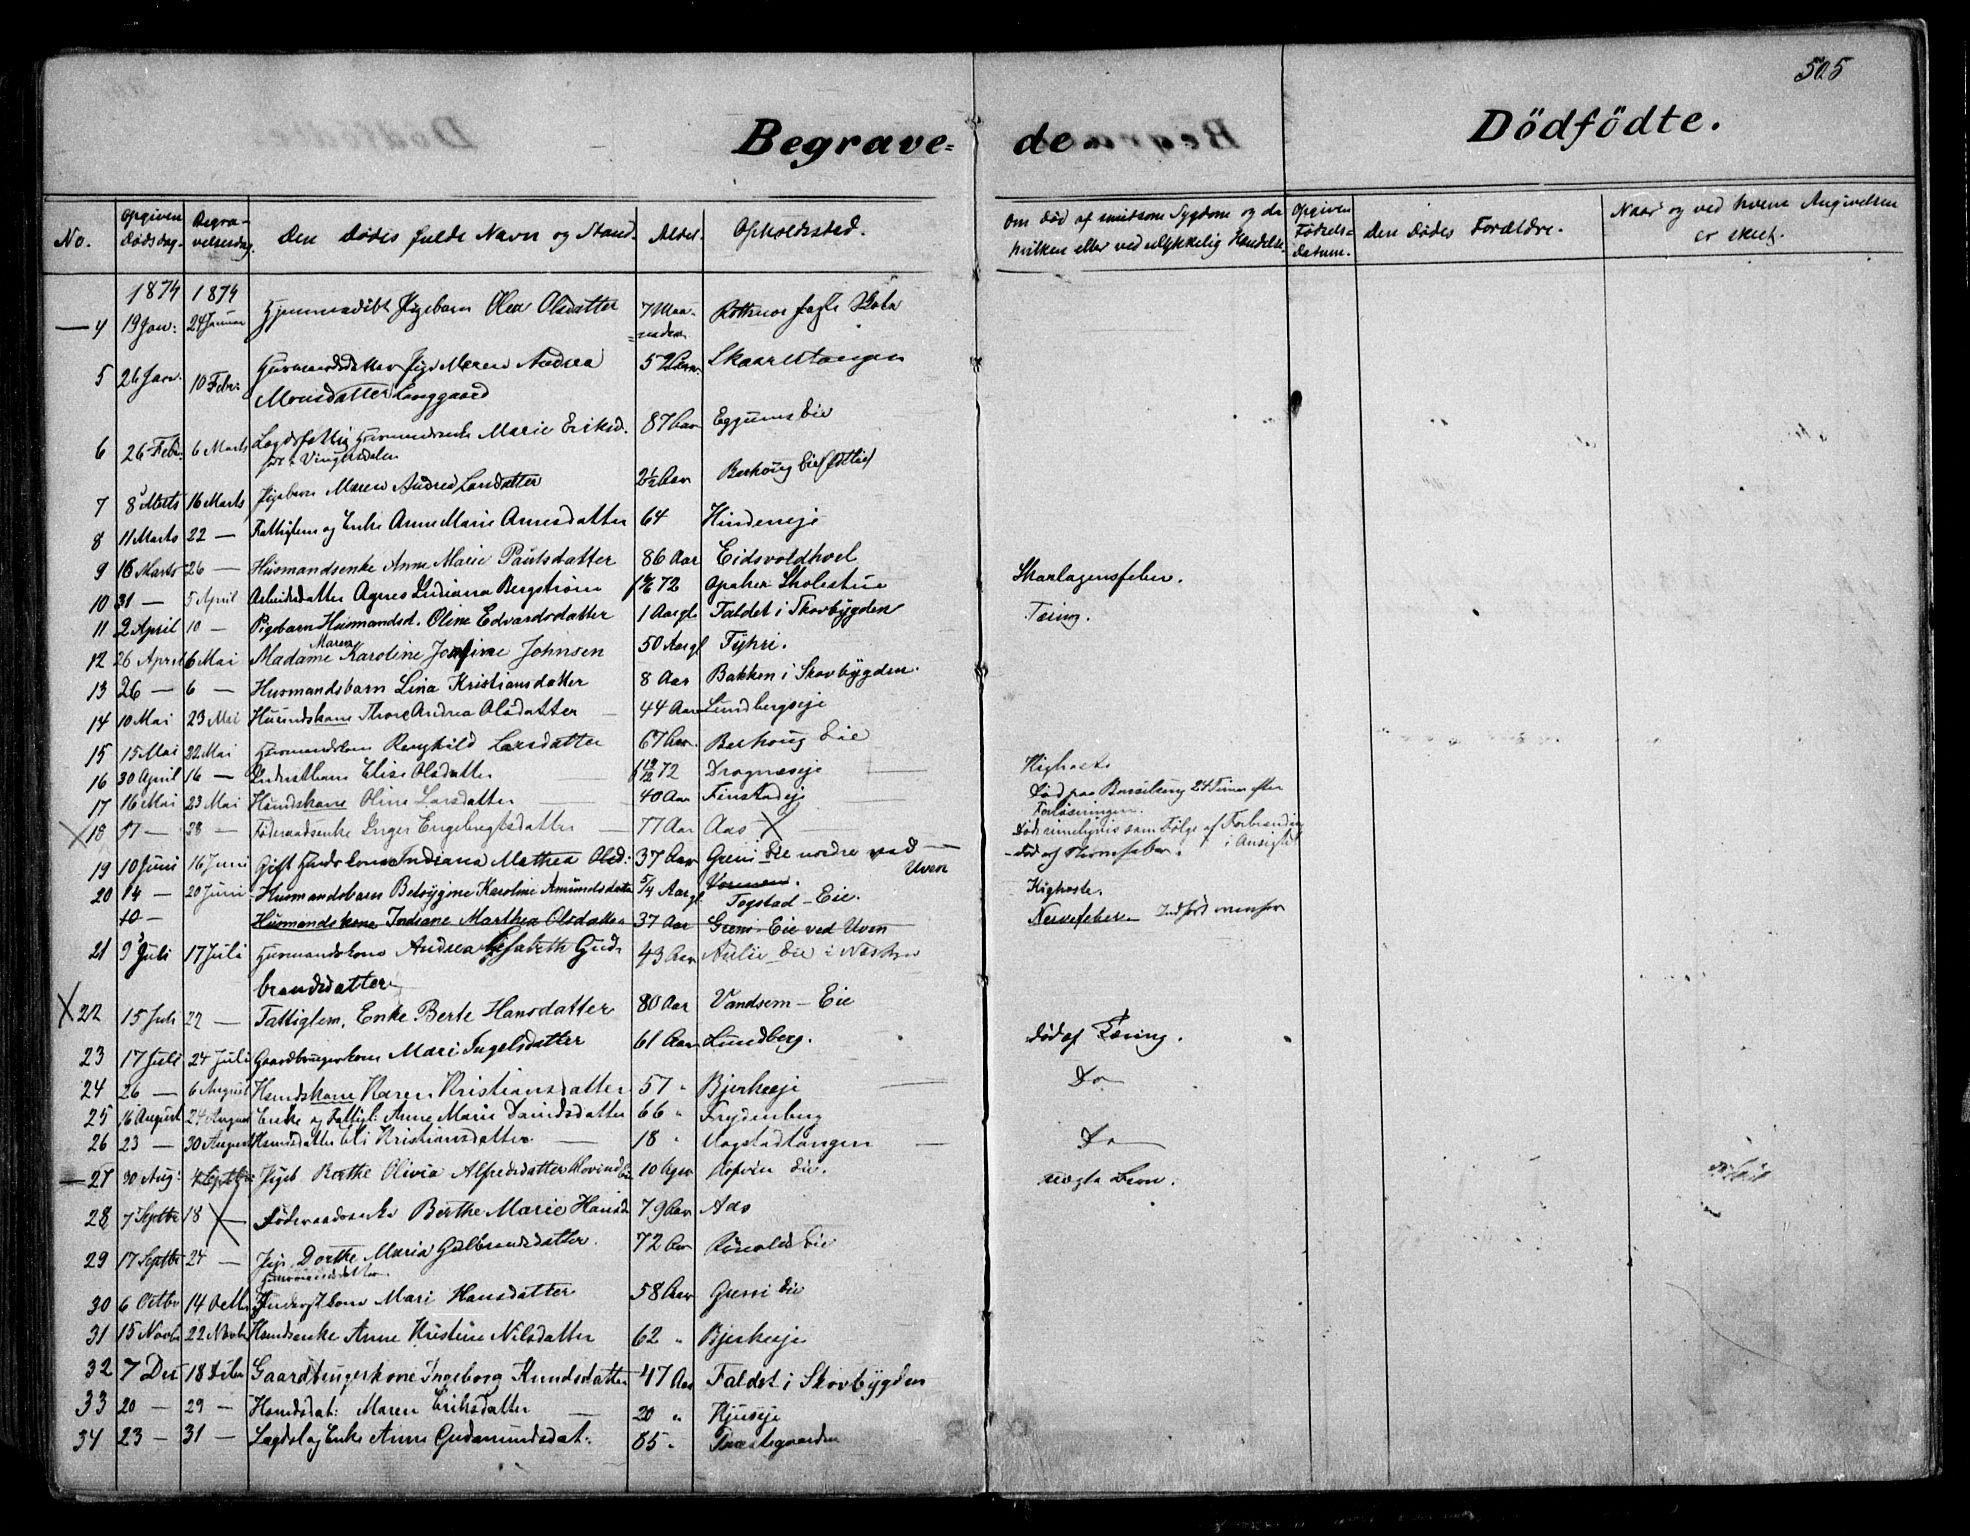 505
Begrave= de. Dödfödte.
No. Opgiven Dödsdag. Begra- velsesdag. Den Dödes fulde Navn og Stand. Alder. Opholdssted. Om död af smitsom Sygdom og da hvilken eller ved ulykkelig Hændelse. Opgiven Födsels- datum. Den Dödes Forældre. Naar og ved hvem Angivelsen er skeet.
1874 1874
4 19 Jan: 24 Januar Hjemmedöbt Pigebarn Olea Olsdatter 7 Maa- neder
5 26 Jan. 10 Febr: Pige Maren Andrea Skaarestangen
Monsdatter Langgaard
6 26 Febr. 6 Marts Lægdsfattig Marie Eriksd. 87 Aar Eggums Eie
7 8 Marts 16 Marts Pigebarn Maren Andrea Larsdatter 2½ Aar Berhoug Eie
8 11 Marts 22 — Fattiglem og Enke Anne Marie Arnesdatter 64 Hindeneje
9 16 Marts 26 — Husmandsenke Anne Marie Paulsdatter 86 Aar Eidsvoldhoel
10 31 — 5 April Arbeidsdatter Agnes Indiana Bergström 72 Opaker Skolestue Skarlagensfeber.
11 2 April 10 — Pigebarn Husmandsd. Oline Edvardsdatter 1 Aar gl Faldet i Skovbÿgden Tæring.
12 26 April 6 Mai Madame Maren Karoline Josefine Johnsen 50 Aar gl Fÿhri.
13 26 — 6 — Husmandsbarn Lina Kristiansdatter 8 Aar Bakken i Skovbÿgden.
14 10 Mai 23 Mai Husmdskone Thore Andrea Olsdatter 44 Aar Lundbergseje
15 15 Mai 22 Mai Husmandskone Ranghild Larsdatter 67 Aar Berhoug Eie
16 30 April 16 — Elise Olsdatter 72 Dragnæseje Kighoste
17 16 Mai 23 Mai Hsmdskone Oline Larsdatter 40 Aar Finstadej Död paa Barselseng 24 Timer efter
Forlösningen.
18 17 — 28 — Föderaadsenke Inger Engebregtsdatter 77 Aar Aas Död rimeligvis som Fölge af Forbrænding
i Ansigtet
19 10 Juni 16 Juni Gift Indiana Mathea Olsd: 37 Aar Greni Eie nordre ved Uven Död af Nervefeber.
20 14 — 20 Juni Husmandsbarn Betsÿ Karoline Amundsdatter 5/4 Aar gl Vormen. Togstad — Eie. Kighoste.
10 — Husmandskone Indiane Marthea Olsdatter 37 Aar Greni Eie ved Uven Nervefeber Indfört ovenfor
21 9 Juli 17 Juli Husmandskone Andrea Elisabeth Gud- 43 Aar Aulie Eie i Næskr
brandsdatter
22 15 Juli 22 — Fattiglem, Enke Berte Hansdatter 80 Aar Vandsem — Eie
23 17 Juli 24 Juli Gaardbrugerkone Mari Ingelsdatter 61 Aar Lundberg. Död af Tæring.
24 26 — 6 August Hsmdskone Karen Kristiansdatter 57 " Bjerkeeje Do
25 16 August 24 August Enke og Fattigl: Anne Marie Davidsdatter 66 " Frydenberg
26 23 — 30 August Hsmdsdatter Eli Kristiansdatter 18 " Vogstadtangen Do
27 30 Aug: 4 Septbr Pigeb Berthe Olivia Alfredsdatter Hovind Eie 10 Uger Eie. uægte Barn.
28 7 Septbr 18 — Föderaadsenke Berthe Marie Hansd 79 Aar Aas
29 17 Septbr 24 — Pige Dorthe Maria Gulbrandsdatter 72 Aar Eie
Husmandsdatter
30 6 Octbr 14 Octbr Inderstkone Mari Hansdatter 58 Aar Greni Eie
31 15 Novbr 22 Novbr Hsmdsenke Anne Kristine Nilsdatter 62 " Bjerkeeje
32 7 Dec 18 Decbr Gaardbrugerkone Ingeborg Knudsdatter 47 Aar Faldet i Skovbÿgden
33 20 — 29 — Hsmdsdat: Maren Eriksdatter 20 " Hjuseje
34 23 — 31 — Lægdsl og Enke Anne Gudmundsdat: 85 " Præstegaarden